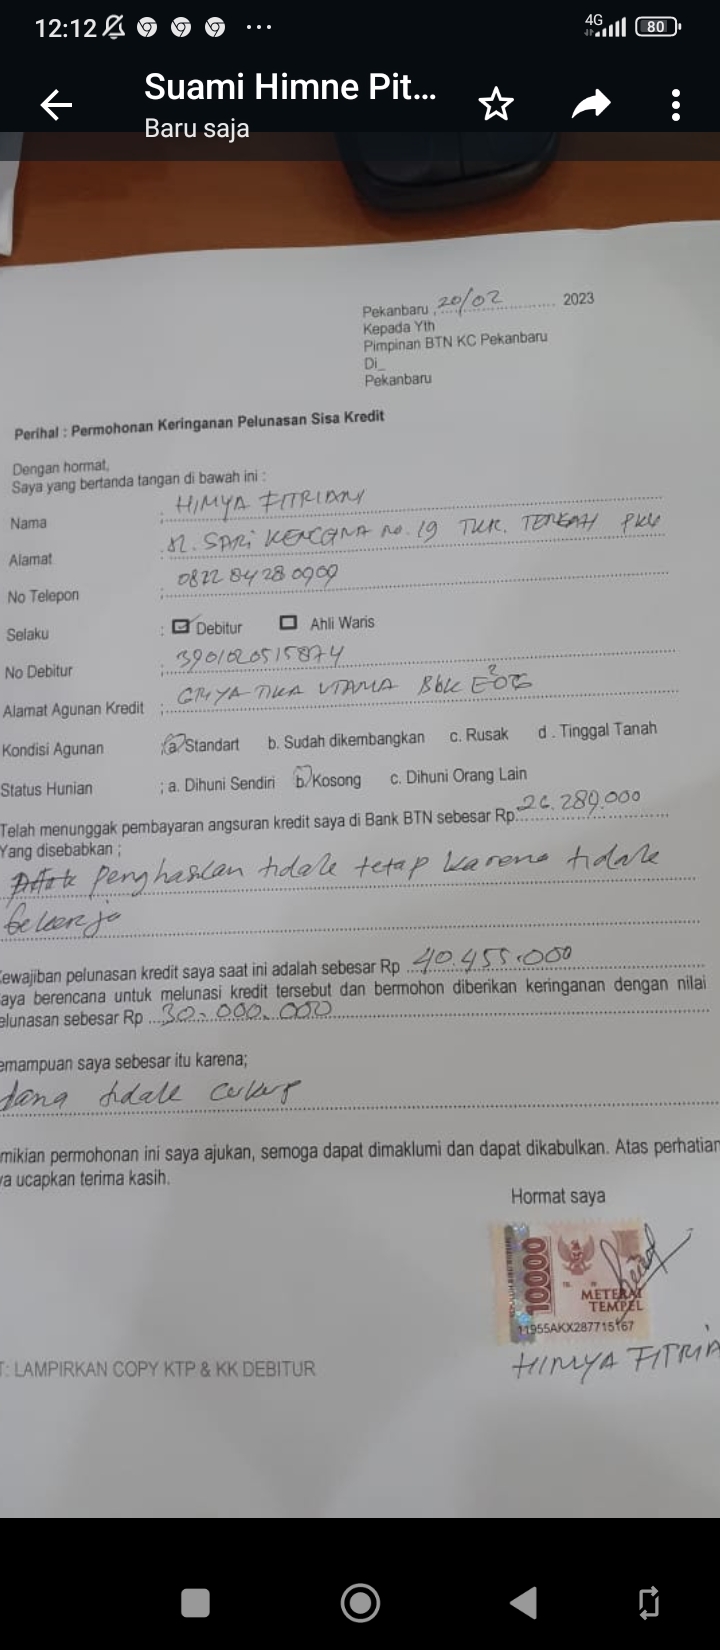 12:12
4G
80
Suami Himne Pit...
Baru saja
Pekanbaru, 20/02 2023
Kepada Yth
Pimpinan BTN KC Pekanbaru
Di_
Pekanbaru
Perihal : Permohonan Keringanan Pelunasan Sisa Kredit
Dengan hormat,
Saya yang bertanda tangan di bawah ini :
Nama : HIMYA FITRIANI
Alamat : Jl. SARI KENCANA No. 19 TKR. TENGAH PKU
No Telepon : 0822 8428 0909
Selaku : Debitur Ahli Waris
No Debitur : 3901020515874
Alamat Agunan Kredit : GRIYA TIKA UTAMA Blk
Kondisi Agunan : a. Standart b. Sudah dikembangkan c. Rusak d. Tinggal Tanah
Status Hunian : a. Dihuni Sendiri b. Kosong c. Dihuni Orang Lain
Telah menunggak pembayaran angsuran kredit saya di Bank BTN sebesar Rp. 26.289.000
Yang disebabkan ;
penghasilan tidak tetap karena tidak
bekerja
Kewajiban pelunasan kredit saya saat ini adalah sebesar Rp 40.455.000
saya berencana untuk melunasi kredit tersebut dan bermohon diberikan keringanan dengan nilai
elunasan sebesar Rp 30.000.000
emampuan saya sebesar itu karena;
dana tidak cukup
mikian permohonan ini saya ajukan, semoga dapat dimaklumi dan dapat dikabulkan. Atas perhatian
ya ucapkan terima kasih.
Hormat saya
10000
METERAI
TEMPEL
11955AKX287715167
HIMYA FITRIA
T: LAMPIRKAN COPY KTP & KK DEBITUR